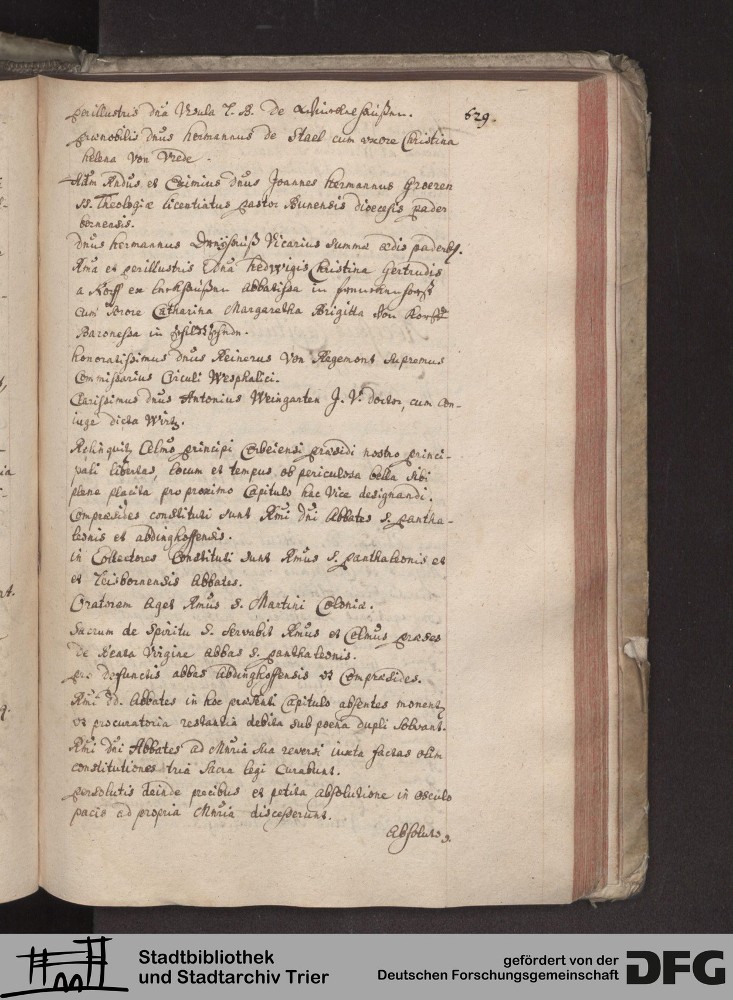 629.
perillustris dna Ursula L. B. de
praenobilis dnus Hermannus de Stael cum uxore Christina
Helena von Vrede.
Adm Rndus et Eximius dnus Joannes Hermannus Groeren
SS. Theologiae licentiatus pastor Bunensis dioecesis pader
bornensis.
dnus Hermannus Vicarius summae aedis paderb.
Rma et perillustris Dna Hedwigis Christina Gertrudis
a Korff ex abbatissa in
cum Sorore Catharina Margaretha Brigitta von Korff
Baronessa in
honoratissimus dnus Reinerus von Hegemont supremus
Commissarius Circuli Wesphalici.
Clarissimus dnus Antonius Weingarten J. V. doctor, cum con-
iuge dicta Wirtz.
Relinquitur Celmo principi Corbeiensi praesidi nostro princi-
pali libertas, locum et tempus ob periculosa bella sibi
plene placita pro proximo Capitulo hac Vice designandi.
Compraesides constituti sunt Rmi dni Abbates S. pantha-
leonis et abdinghoffensis.
in Collectores Constituti sunt Rmus S. panthaleonis et
et Leisbornensis Abbates.
Oratorem aget Rmus S. Martini Coloniae.
Sacrum de Spiritu S. servabit Rmus et Celmus praeses
De Beata Virgine abbas S. panthaleonis.
pro defunctis abbas Abdinghoffensis ut Compraesides.
Rmi dd. Abbates in hoc praesenti Capitulo absentes monentur
ut procuratoria restantia debita sub poena dupli solvant.
Rmi dni Abbates ad Mnria sua reversi iuxta factas olim
constitutiones tria sacra legi curabunt.
persolutis deinde precibus et petita absolutione in osculo
pacis ad propria Mnria discesserunt.
Absolutos.
Stadtbibliothek
und Stadtarchiv Trier
gefördert von der
Deutschen Forschungsgemeinschaft
DFG